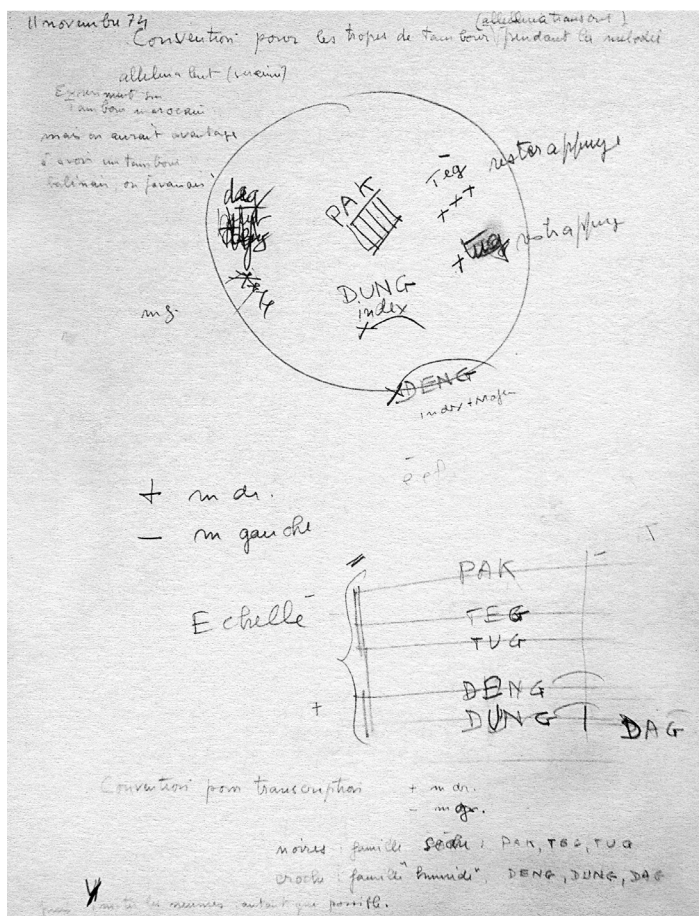 11 novembre 74
(alleluia transcrit)
Convention pour les tropes de tambour pendant les melodies
alleluia but
Experiment sur
Tambour marocain
mais on aurait avantage
à avoir un tambour
balinais, ou javanais
dag
PAK
Tēg rester appuyé
+++
+ tug rest appuyé
DUNG
index
m g.
DENG
index + Majeur
+ m dr.
— m gauche
PAK
Echelle
TEG
TUG
DENG
+ DUNG DAG
Convention pour transcription + m dr.
- m g.
noires : famille sèche : PAK, TEG, TUG
croche : famille "humide", DENG, DUNG, DAG
les neumes autant que possible.